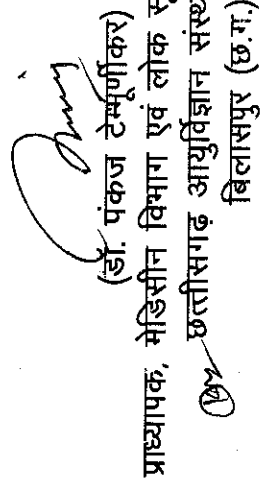 (डॉ. पंकज टेम्पूर्णीकर)
प्राध्यापक, मेडिसीन विभाग एवं लोक
छत्तीसगढ़ आयुर्विज्ञान
बिलासपुर (छ.ग.)